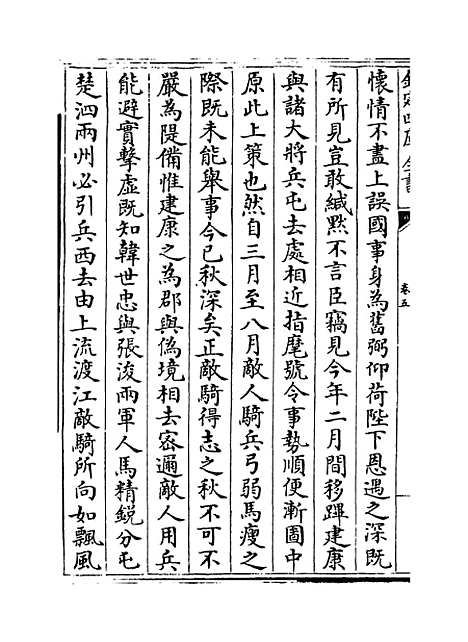 欽定四庫全書
卷五
懷情不盡上誤國事身為舊弼仰荷陛下恩遇之深既
有所見豈敢緘默不言臣竊見今年二月間移蹕建康
與諸大將兵屯去處相近指麾號令事勢順便漸圖中
原此上策也然自三月至八月敵人騎兵弓弱馬瘦之
際既未能舉事今已秋深矣正敵騎得志之秋不可不
嚴為隄備惟建康之為郡與偽境相去宻邇敵人用兵
能避實擊虛既知韓世忠與張浚兩軍人馬精鋭分屯
楚泗兩州必引兵西去由上流渡江敵騎所向如飄風